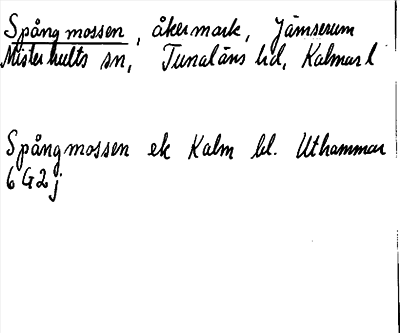 Spångmossen, åkermark, Jämserum
Misterhults sn, Tunaläns hd, Kalmar l
Spångmossen ek Kalm bl. Uthammar
6G2j